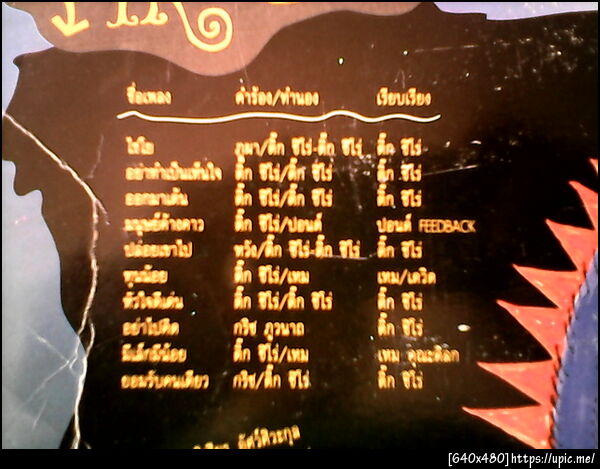 ชื่อเพลง คำร้อง/ทำนอง เรียบเรียง
ไฮโซ ภูมา/ติ๊ก ชีโร่-ติ๊ก ชีโร่ ติ๊ก ชีโร่
อย่าทำเป็นเห็นใจ ติ๊ก ชีโร่/ติ๊ก ชีโร่ ติ๊ก ชีโร่
ออกมาเต้น ติ๊ก ชีโร่/ติ๊ก ชีโร่ ติ๊ก ชีโร่
มนุษย์ค้างคาว ติ๊ก ชีโร่/ปอนด์ ปอนด์ FEEDBACK
ปล่อยเขาไป หวัง/ติ๊ก ชีโร่-ติ๊ก ชีโร่ ติ๊ก ชีโร่
ทูนน้อย ติ๊ก ชีโร่/เหม เหม/เดวิด
หัวใจดีเด่น ติ๊ก ชีโร่/ติ๊ก ชีโร่ ติ๊ก ชีโร่
อย่าไปคิด กริช ภูวนาถ ติ๊ก ชีโร่
มีเล็กมีน้อย ติ๊ก ชีโร่/เหม เหม
ยอมรับคนเดียว กริช/ติ๊ก ชีโร่ ติ๊ก ชีโร่
[640x480]https://upic.me/